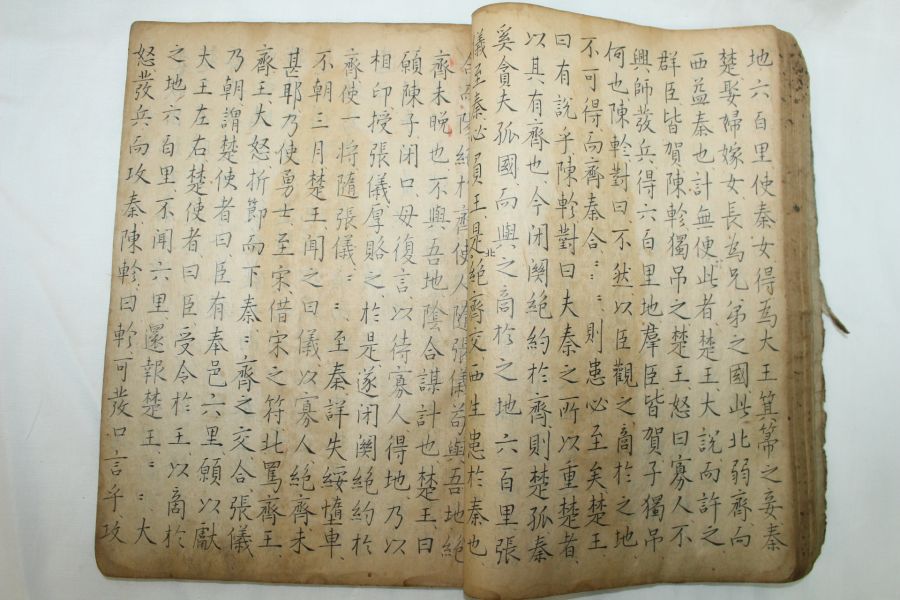 地六百里使秦女得為大王箕箒之妾秦
楚娶婦嫁女長為兄弟之國此北弱齊而
西益秦也計無便此者楚王大說而許之
群臣皆賀陳軫獨吊之楚王怒曰寡人不
興師發兵得六百里地羣臣皆賀子獨吊
何也陳軫對曰不然以臣觀之商於之地
不可得而齊秦合〻〻則患必至矣楚王
曰有說乎陳軫對曰夫秦之所以重楚者
以其有齊也今闭関絕約於齊則楚孤秦
奚貪夫孤國而與之商於之地六百里張
儀至秦必負王北是絕齊交西生患於秦也
合而陰絕於齊使人隨張儀苟與吾地絕
齊未晚也不與吾地陰合謀計也楚王曰
願陳子闭口毋復言以待寡人得地乃以
相印授張儀厚賂之於是遂闭関絕約於
齊使一将隨張儀〻〻至秦詳失綏墮車
不朝三月楚王聞之曰儀以寡人絕齊未
甚耶乃使勇士至宋借宋之符北罵齊王
齊王大怒折節而下秦〻齊之交合張儀
乃朝謂楚使者曰臣有奉邑六里願以獻
大王左右楚使者曰臣受令於王以商於
之地六百里不聞六里還報楚王〻〻大
怒發兵而攻秦陳軫曰軫可發口言乎攻